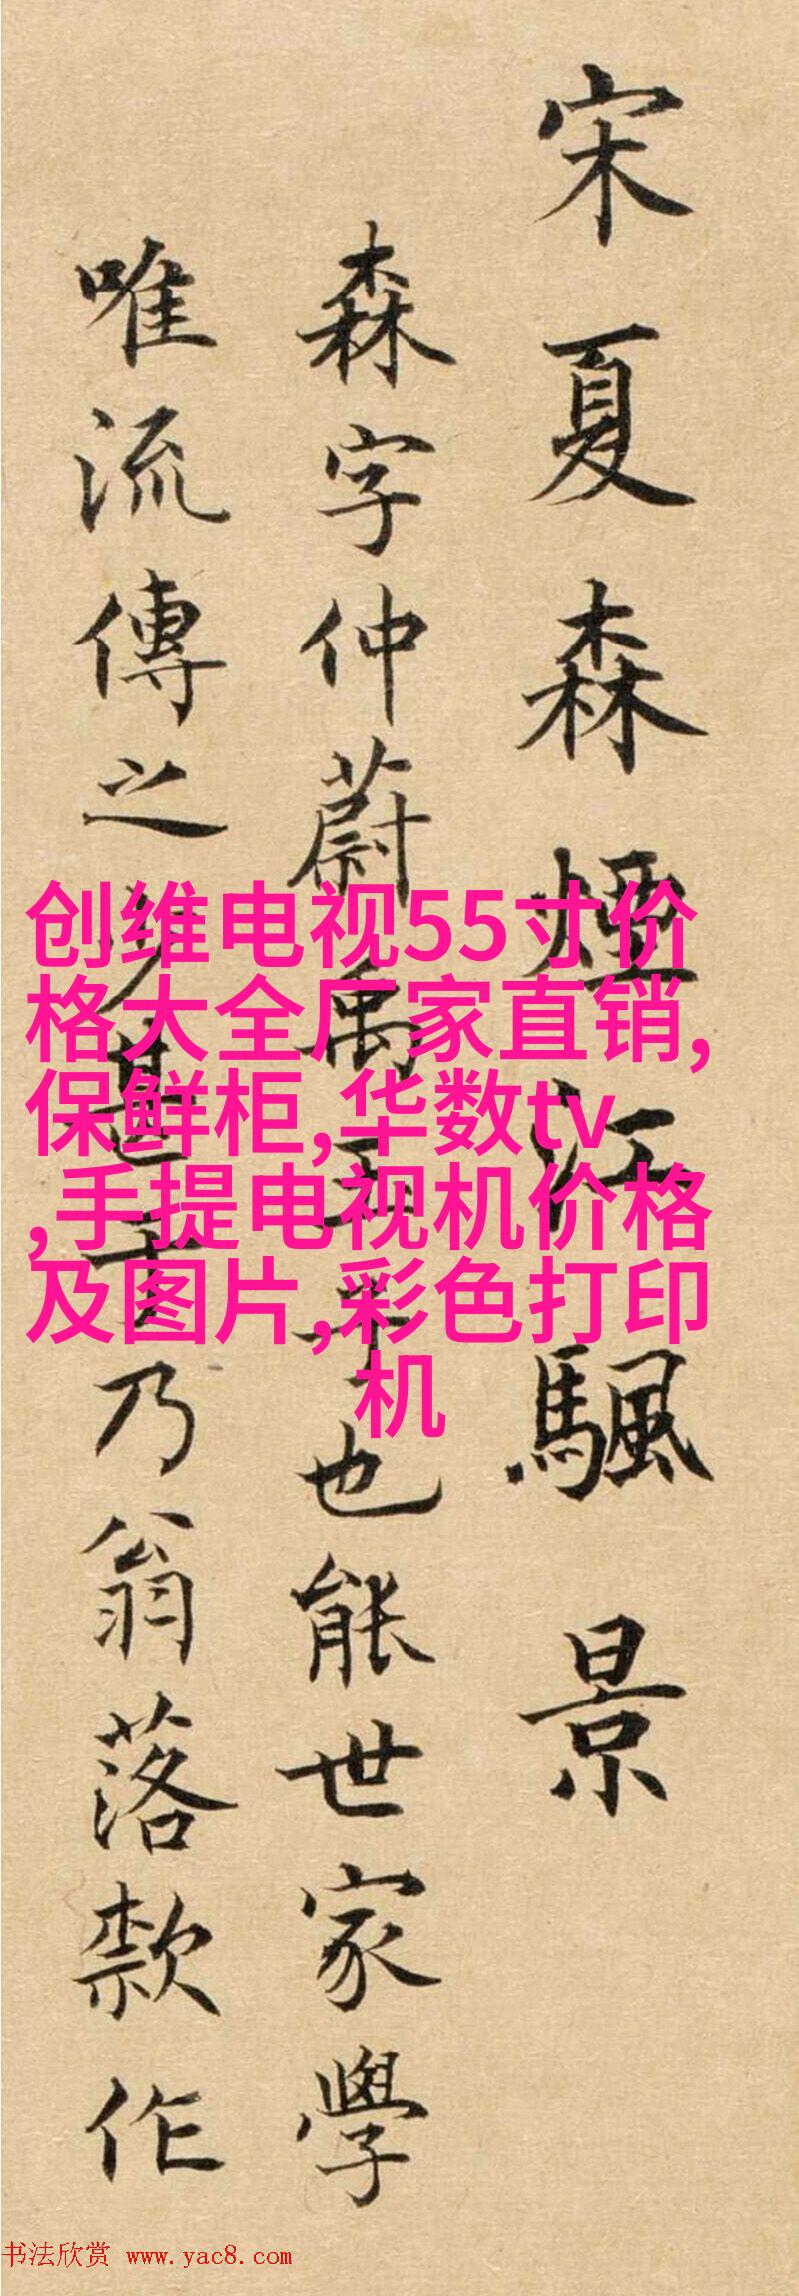 宋夏森煙江颿景
森字仲蔚禹玉子也能世家學
唯流傳之甚乃翁落款作
创维电视55寸价
格大全厂家直销,
保鲜柜,华数tv
,手提电视机价格
及图片,彩色打印
机
书法欣赏 www.yac8.com